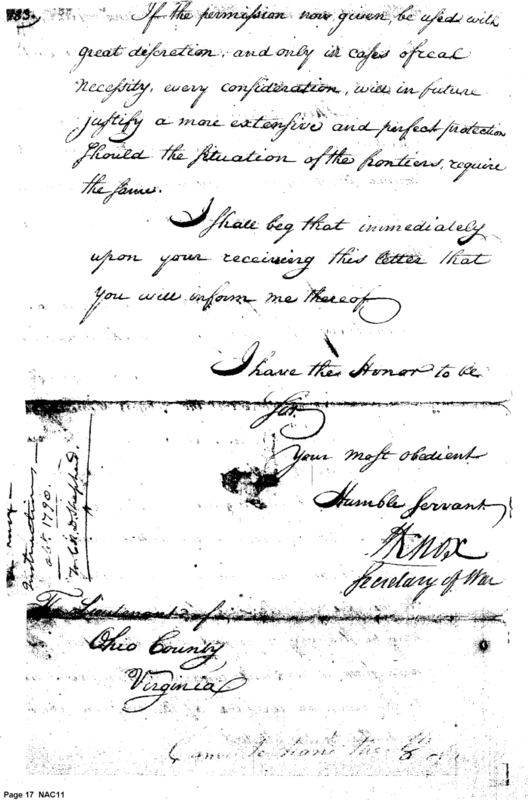 183.
If the permission now given, be used with
great discretion, and only in cases of real
necessity, every consideration, will in future
justify a more extensive and perfect protection
Should the situation of the frontiers, require
the same.
I shall beg that immediately
upon your receiving this letter that
you will inform me thereof
I have the Honor to be
Sir,
Your most obedient
Humble Servant
HKnox
Secretary of War
Instructions
1790.
To Col. D Shepherd.
The Lieutenant of
Ohio County
Virginia
Page 17 NAC11